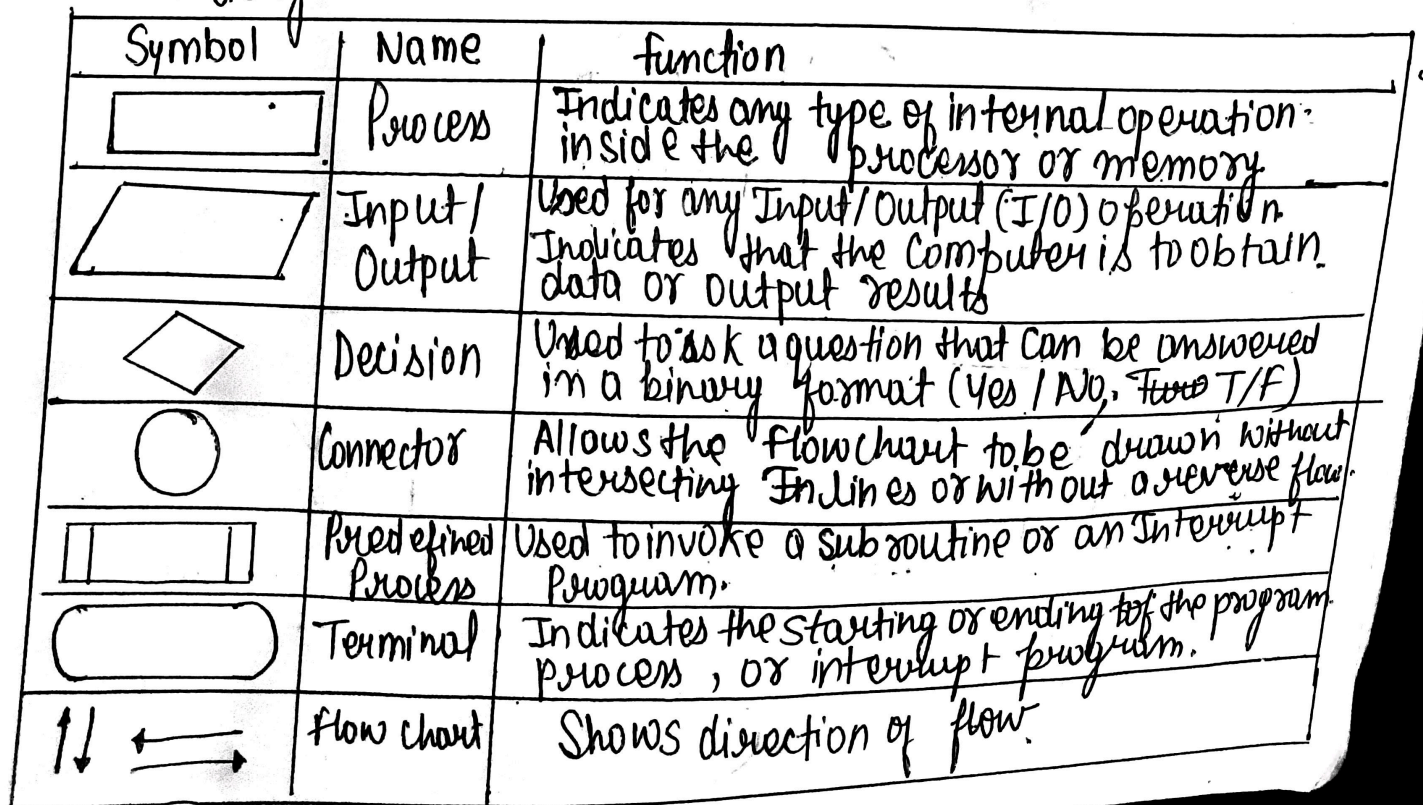 Symbol Name function
Process Indicates any type of internal operation
inside the processor or memory
Input/ Used for any Input/Output (I/O) operation
Output Indicates that the Computer is to obtain.
data or output results
Decision Used to ask a question that can be answered
in a binary format (Yes / No, T/F)
Connector Allows the flowchart to be drawn without
intersecting lines or without a reverse flow.
Predefined Used to invoke a subroutine or an Interrupt
Process Program.
Terminal Indicates the starting or ending of the program.
process, or interrupt program.
flow chart Shows direction of flow.